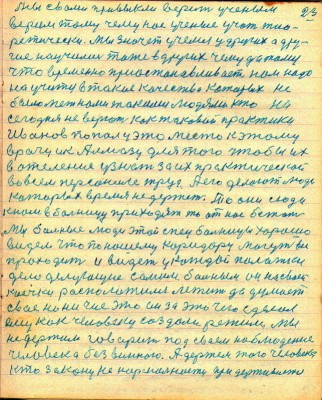 23
Мы сваим правилам верим ученым
верим тому чему нас ученые учат тио-
ретически. Мы значет учемся у других а дру-
гие научили также других чему да таму
что временно приостанавливает нам надо
научиту в такие качества которых не
было меткими такими людями кто на
сегодня не верит как таковой практики
Иванов попал у это место к этому
врачу ик Алмазу для того чтобы их
в отеления узнат за их практической
во всем персонале труд. А его делают люди
которых время не держит. То они сюды
к нам в бальницу приходят то от нас бежат
Мы больные люди этой спец бальницы хорошо
видем что по нашему каридору могут вси
проходит и видет у каждой палатки
дело делующие самим больным он на своей
коечки расположился лежит да думает
свае на ни чие это он за это чего сделал
ему как человеку создали режим. Мы
не держим говарит под своем наблюдение
человека без винного. А держем того человека
кто закону не нормалность придерживаится